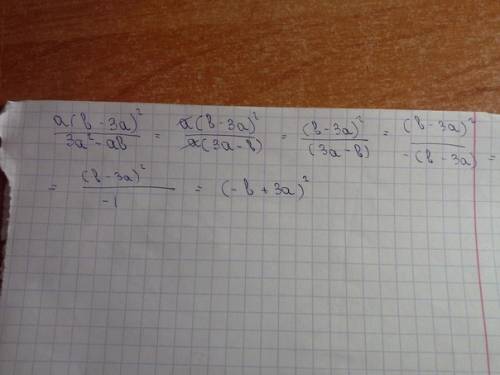 a(b-3a)²/3a²-ab = a(b-3a)²/a(3a-b) = (b-3a)²/(3a-b) = (b-3a)²/-(b-3a) =
= (b-3a)²/-1 = (-b+3a)²